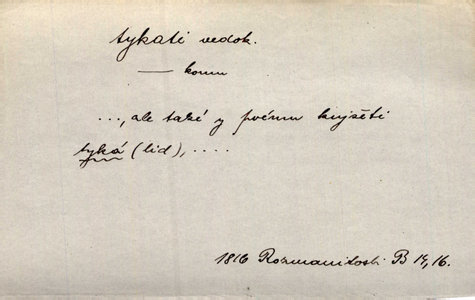 tykati nedok.
—— komu
..., ale také y pvému knjžeti
tyká (lid), ....
1816 Rozmanitosti B 14, 16.